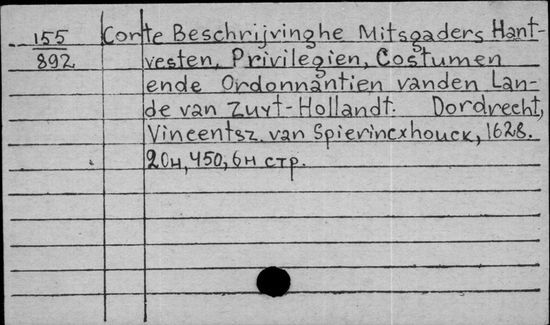 155 Corte Beschrijvinghe Mitsgaders Hant-
892 vesten, Privilegien, Costumen
ende Ordonnantien vanden Lan-
de van Zuyt-Hollandt. Dordrecht,
Vinceentsz. van Spierincxhouck, 1628.
20н, 450, 6н стр.